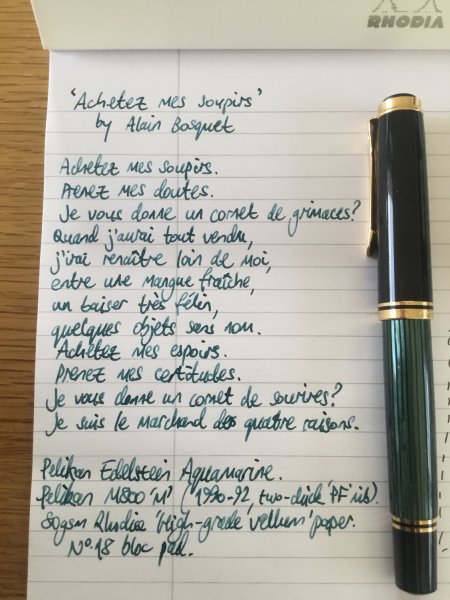 RHODIA
'Achetez mes soupirs'
by Alain Bosquet
Achetez mes soupirs.
Prenez mes doutes.
Je vous donne un cornet de grimaces?
Quand j'aurai tout vendu,
j'irai renaître loin de moi,
entre une mangue fraîche,
un baiser très félin,
quelques objets sans nom.
Achetez mes espoirs.
Prenez mes certitudes.
Je vous donne un cornet de sourires?
Je suis le marchand des quatre raisons.
Pelikan Edelstein Aquamarine.
Pelikan M800 'M' (1990-92, two-chick 'PF' nib).
80gsm Rhodia 'High-grade vellum' paper.
Nº.18 bloc pad.